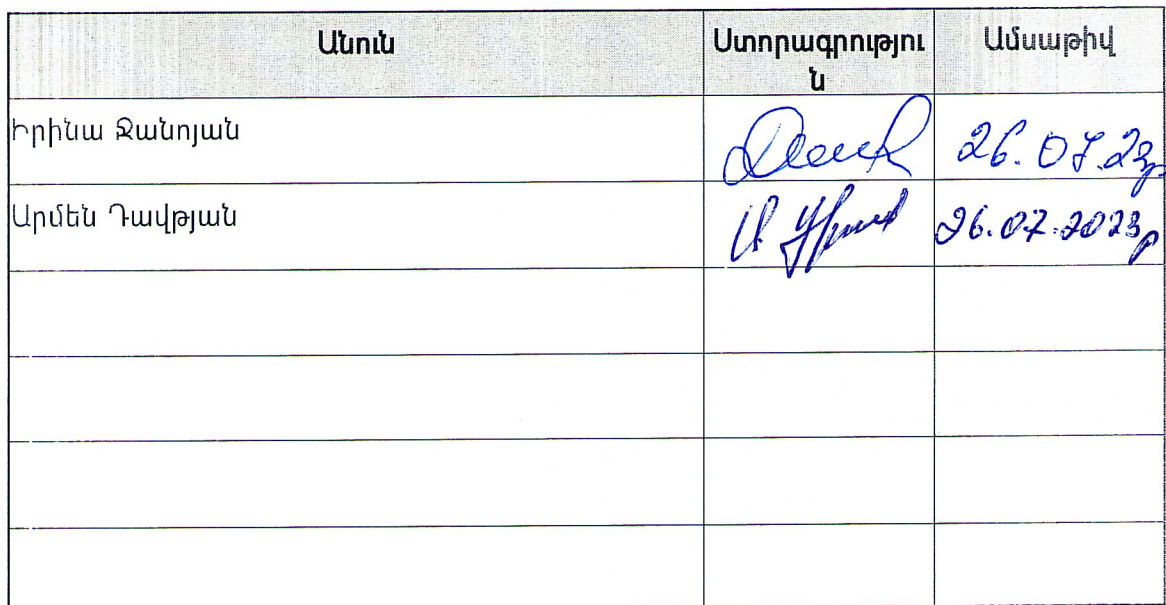 Անուն Ստորագրությու Ամսաթիվ
ն
Իրինա Ջանոյան 26.07.23թ
Արմեն Դավթյան 26.07.2023թ